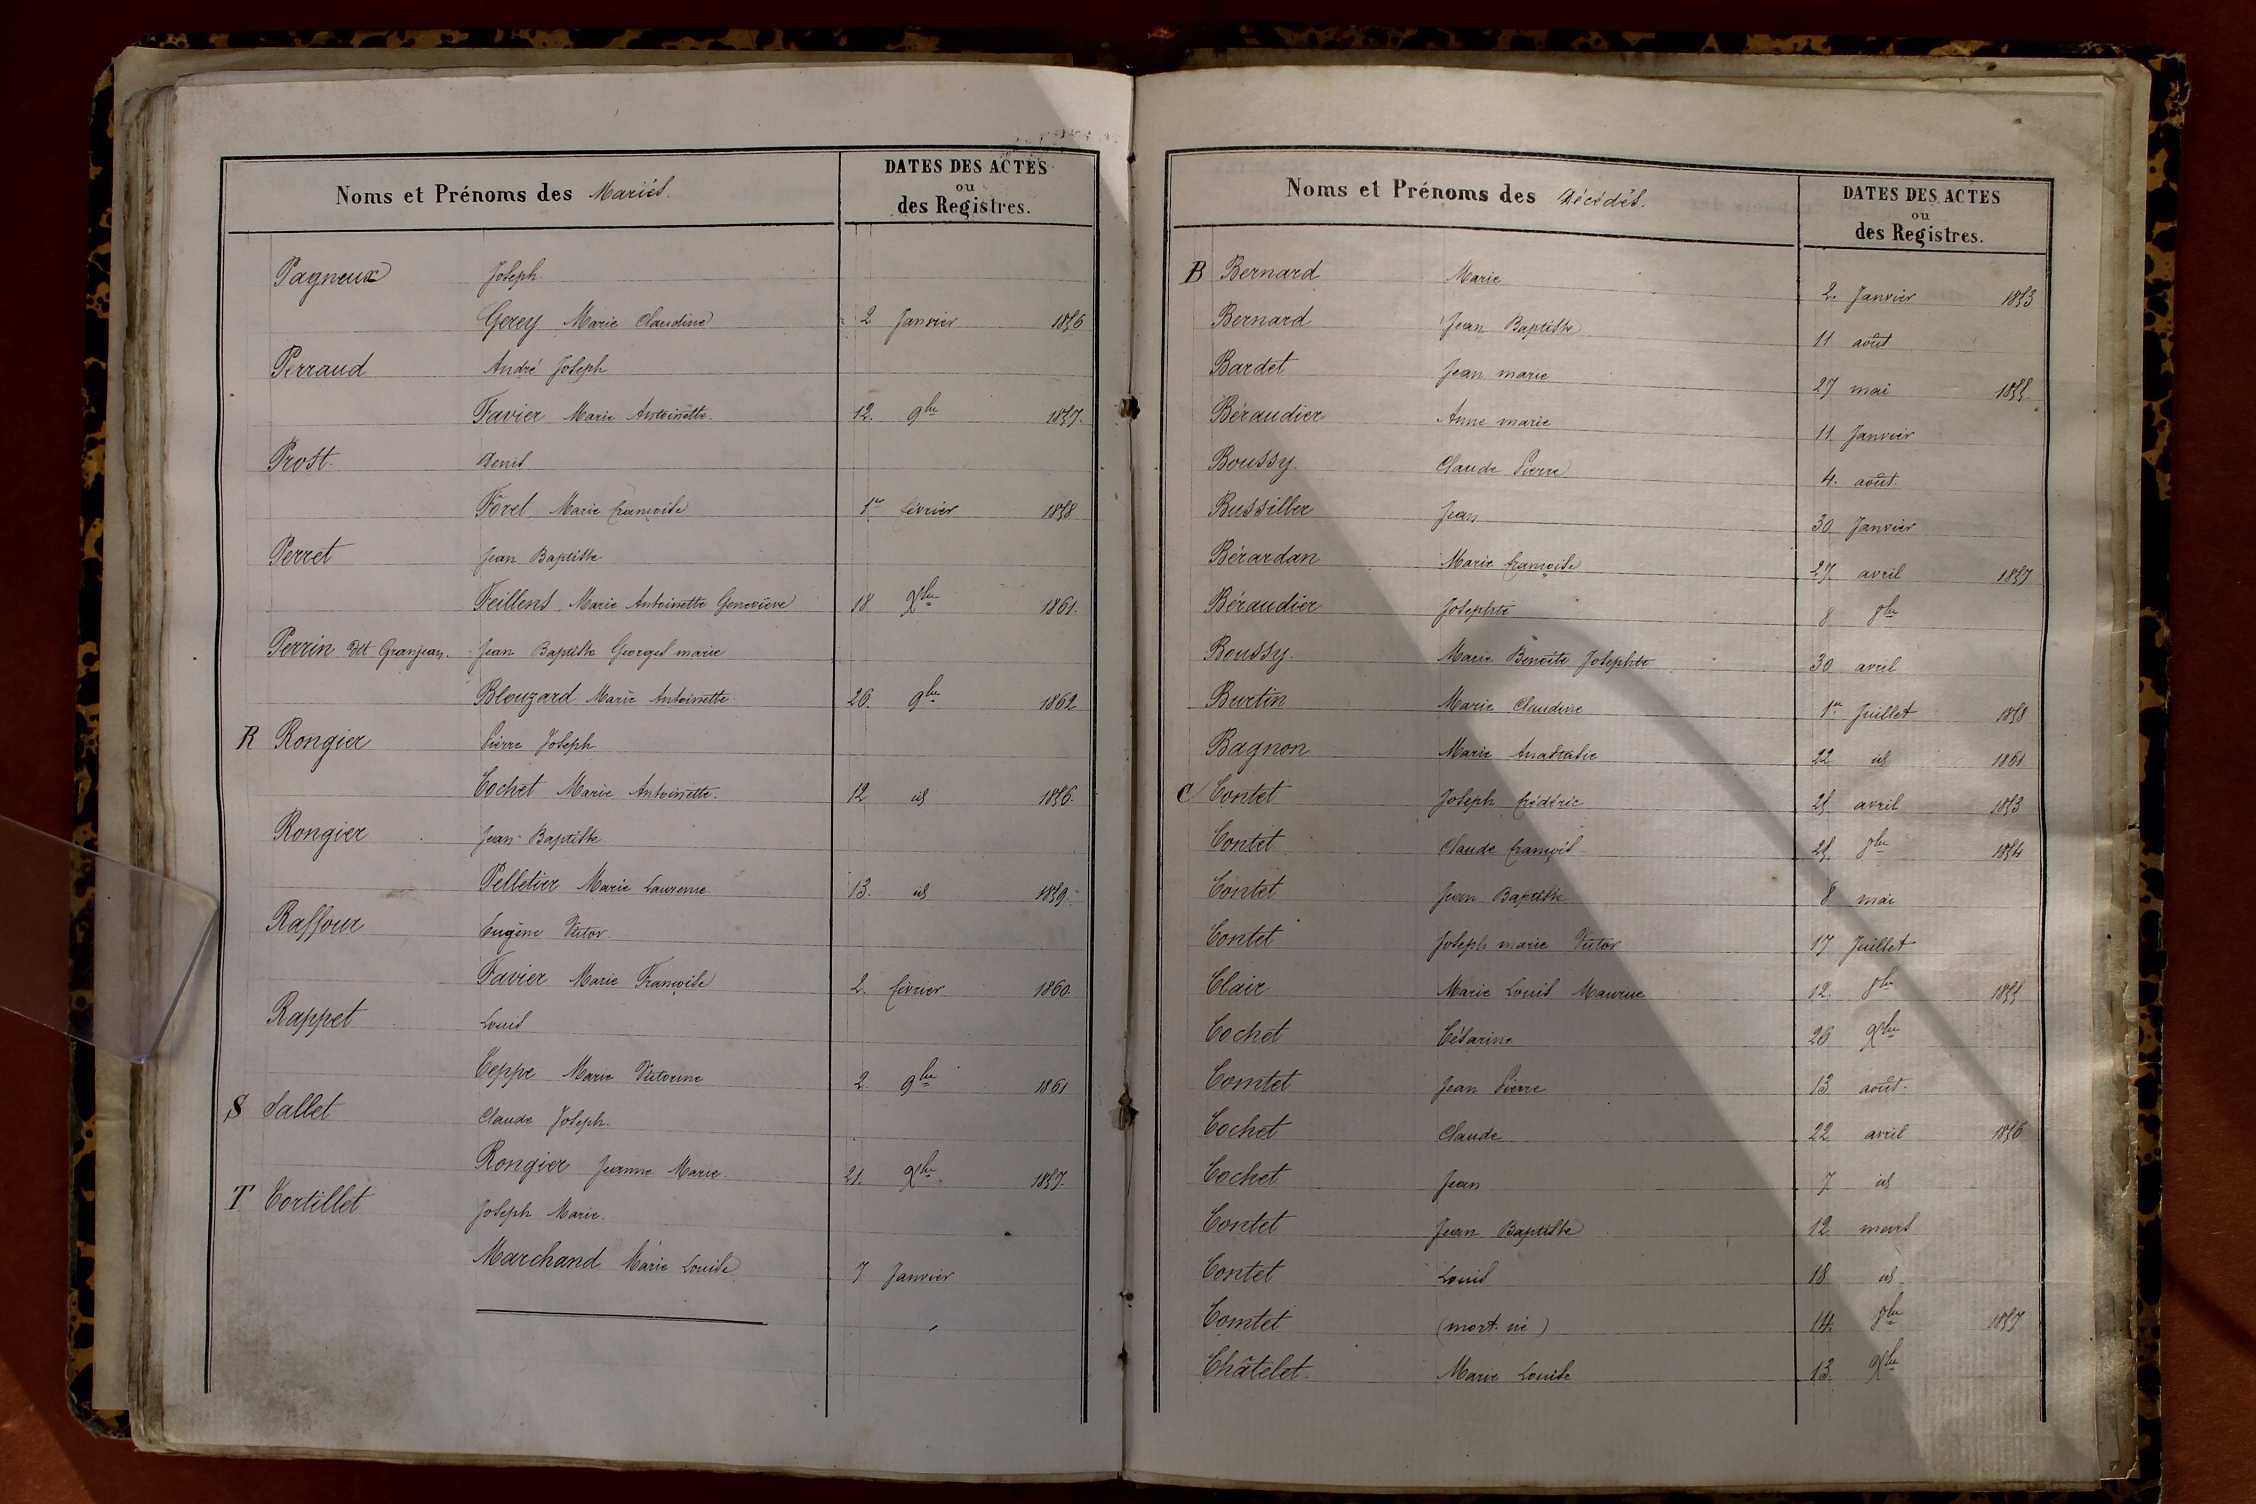 Noms et Prénoms des Mariés.
DATES DES ACTES
ou
des Registres.
Pagneux Joseph
Gerey Marie Claudine 2 Janvier 1856
Perraud André Joseph
Favier Marie Antoinette. 12. 9bre 1857.
Prost. Denis
Forel Marie françoise 1er février 1858
Perret Jean Baptiste
Feillens Marie Antoinette Geneviève 18 Xbre 1861.
Perrin dit Granjean. Jean Baptiste Georges marie
Blouzard Marie Antoinette 26. 9bre 1862
R Rongier Pierre Joseph
Cochet Marie Antoinette. 12 id 1856.
Rongier Jean Baptiste
Pelletier Marie Laurence 13. id 1859.
Raffour Eugène Victor.
Favier Marie Françoise 2. février 1860
Rappet Louis
Ceppe Marie Victorine 2. 9bre 1861
S Sallet Claude Joseph.
Rongier Jeanne Marie. 21. Xbre. 1857.
T Tortillet Joseph Marie.
Marchand Marie Louise 7 Janvier
Noms et Prénoms des Décédés.
DATES DES ACTES
ou
des Registres.
B Bernard Marie 2. Janvier 1853
Bernard Jean Baptiste 11 août
Bardet Jean marie 27 mai 1855.
Béraudier Anne marie 11 Janvier
Boussy. Claude Pierre 4. août.
Bussiller Jean 30 Janvier
Bérardan Marie françoise 27 avril 1857
Béraudier Josephte 8 8bre
Boussy. Marie Benoite Josephte 30 avril
Burtin Marie Claudine 1er Juillet 1858
Bagnon Marie Anastasie 22 id 1861
C Contet Joseph frédéric 25 avril 1853
Contet Claude françois 25. 8bre 1854
Contet Jean Baptiste 8 mai
Contet Joseph marie Victor 17 Juillet
Clair Marie Louis Maurice 12. 8bre 1855
Cochet Césarine 26 Xbre
Comtet Jean Pierre 13 août.
Cochet Claude 22 avril 1856
Cochet Jean 7 id
Contet Jean Baptiste 12 mars
Contet Louis 18 id
Comtet (mort. né) 14. 8bre 1857
Châtelet. Marie Louise 13. Xbre